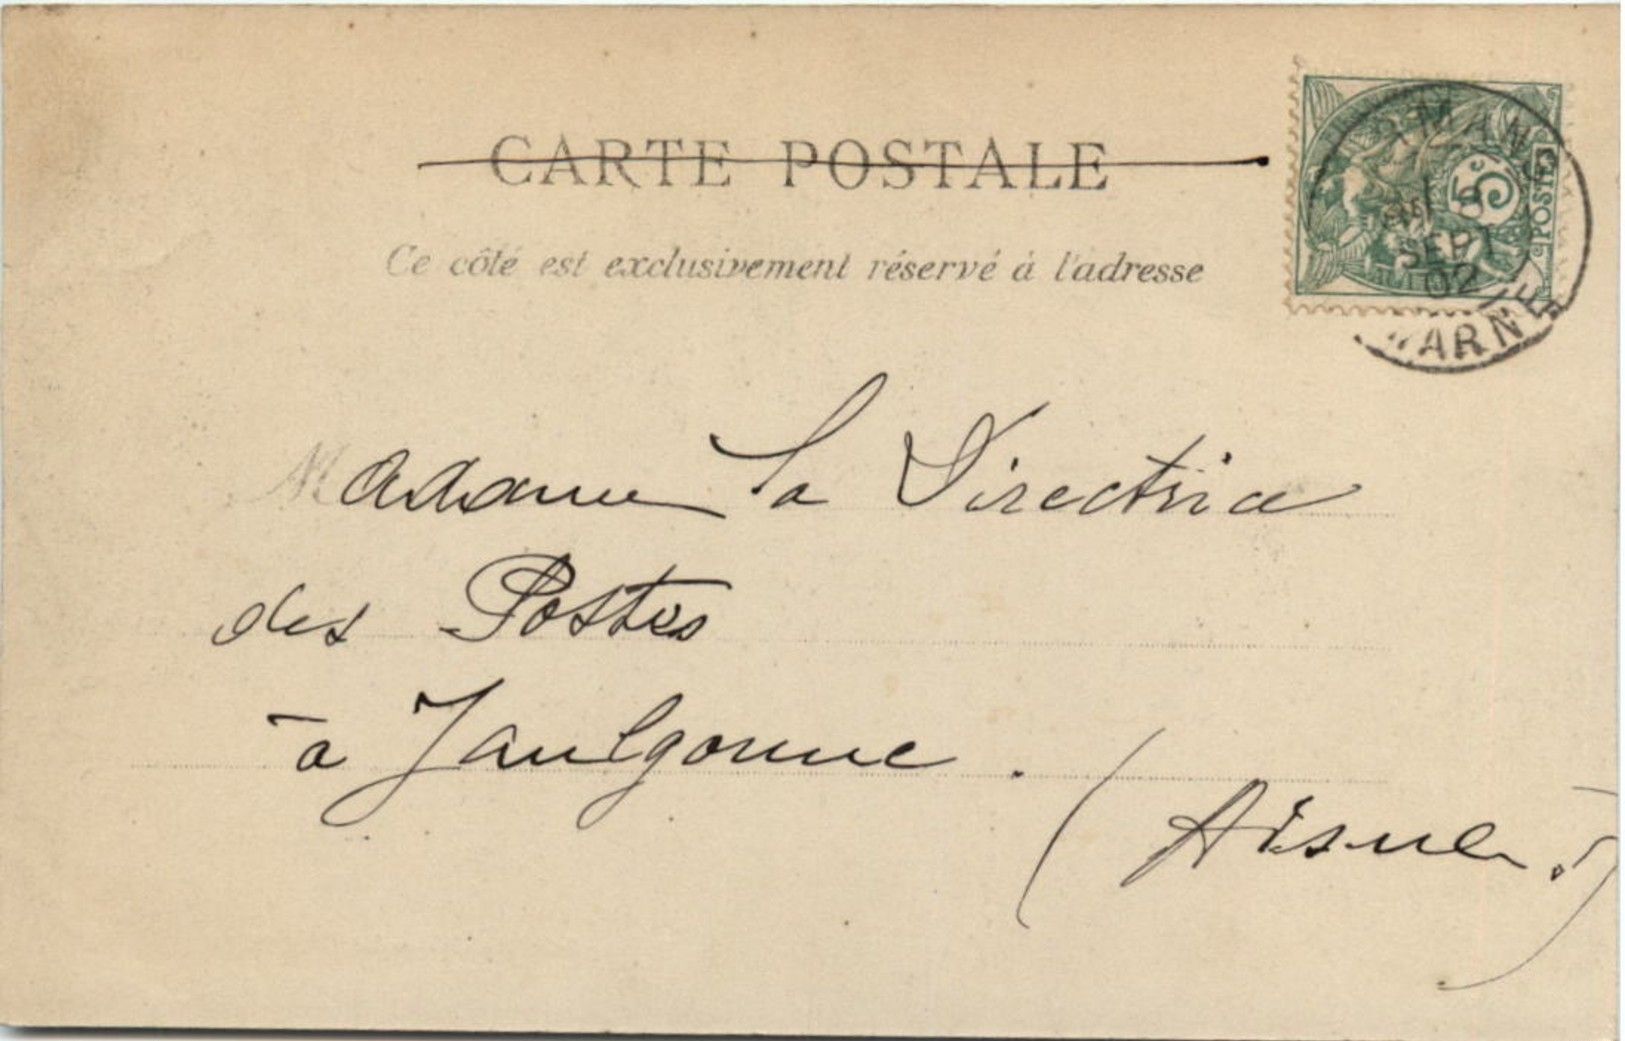 CARTE POSTALE
Ce côté est exclusivement réservé à l'adresse
5
POSTES
SEPT
02
MARNE
Madame la Directrice
des Postes
à Jaulgonne.
(Aisne.)